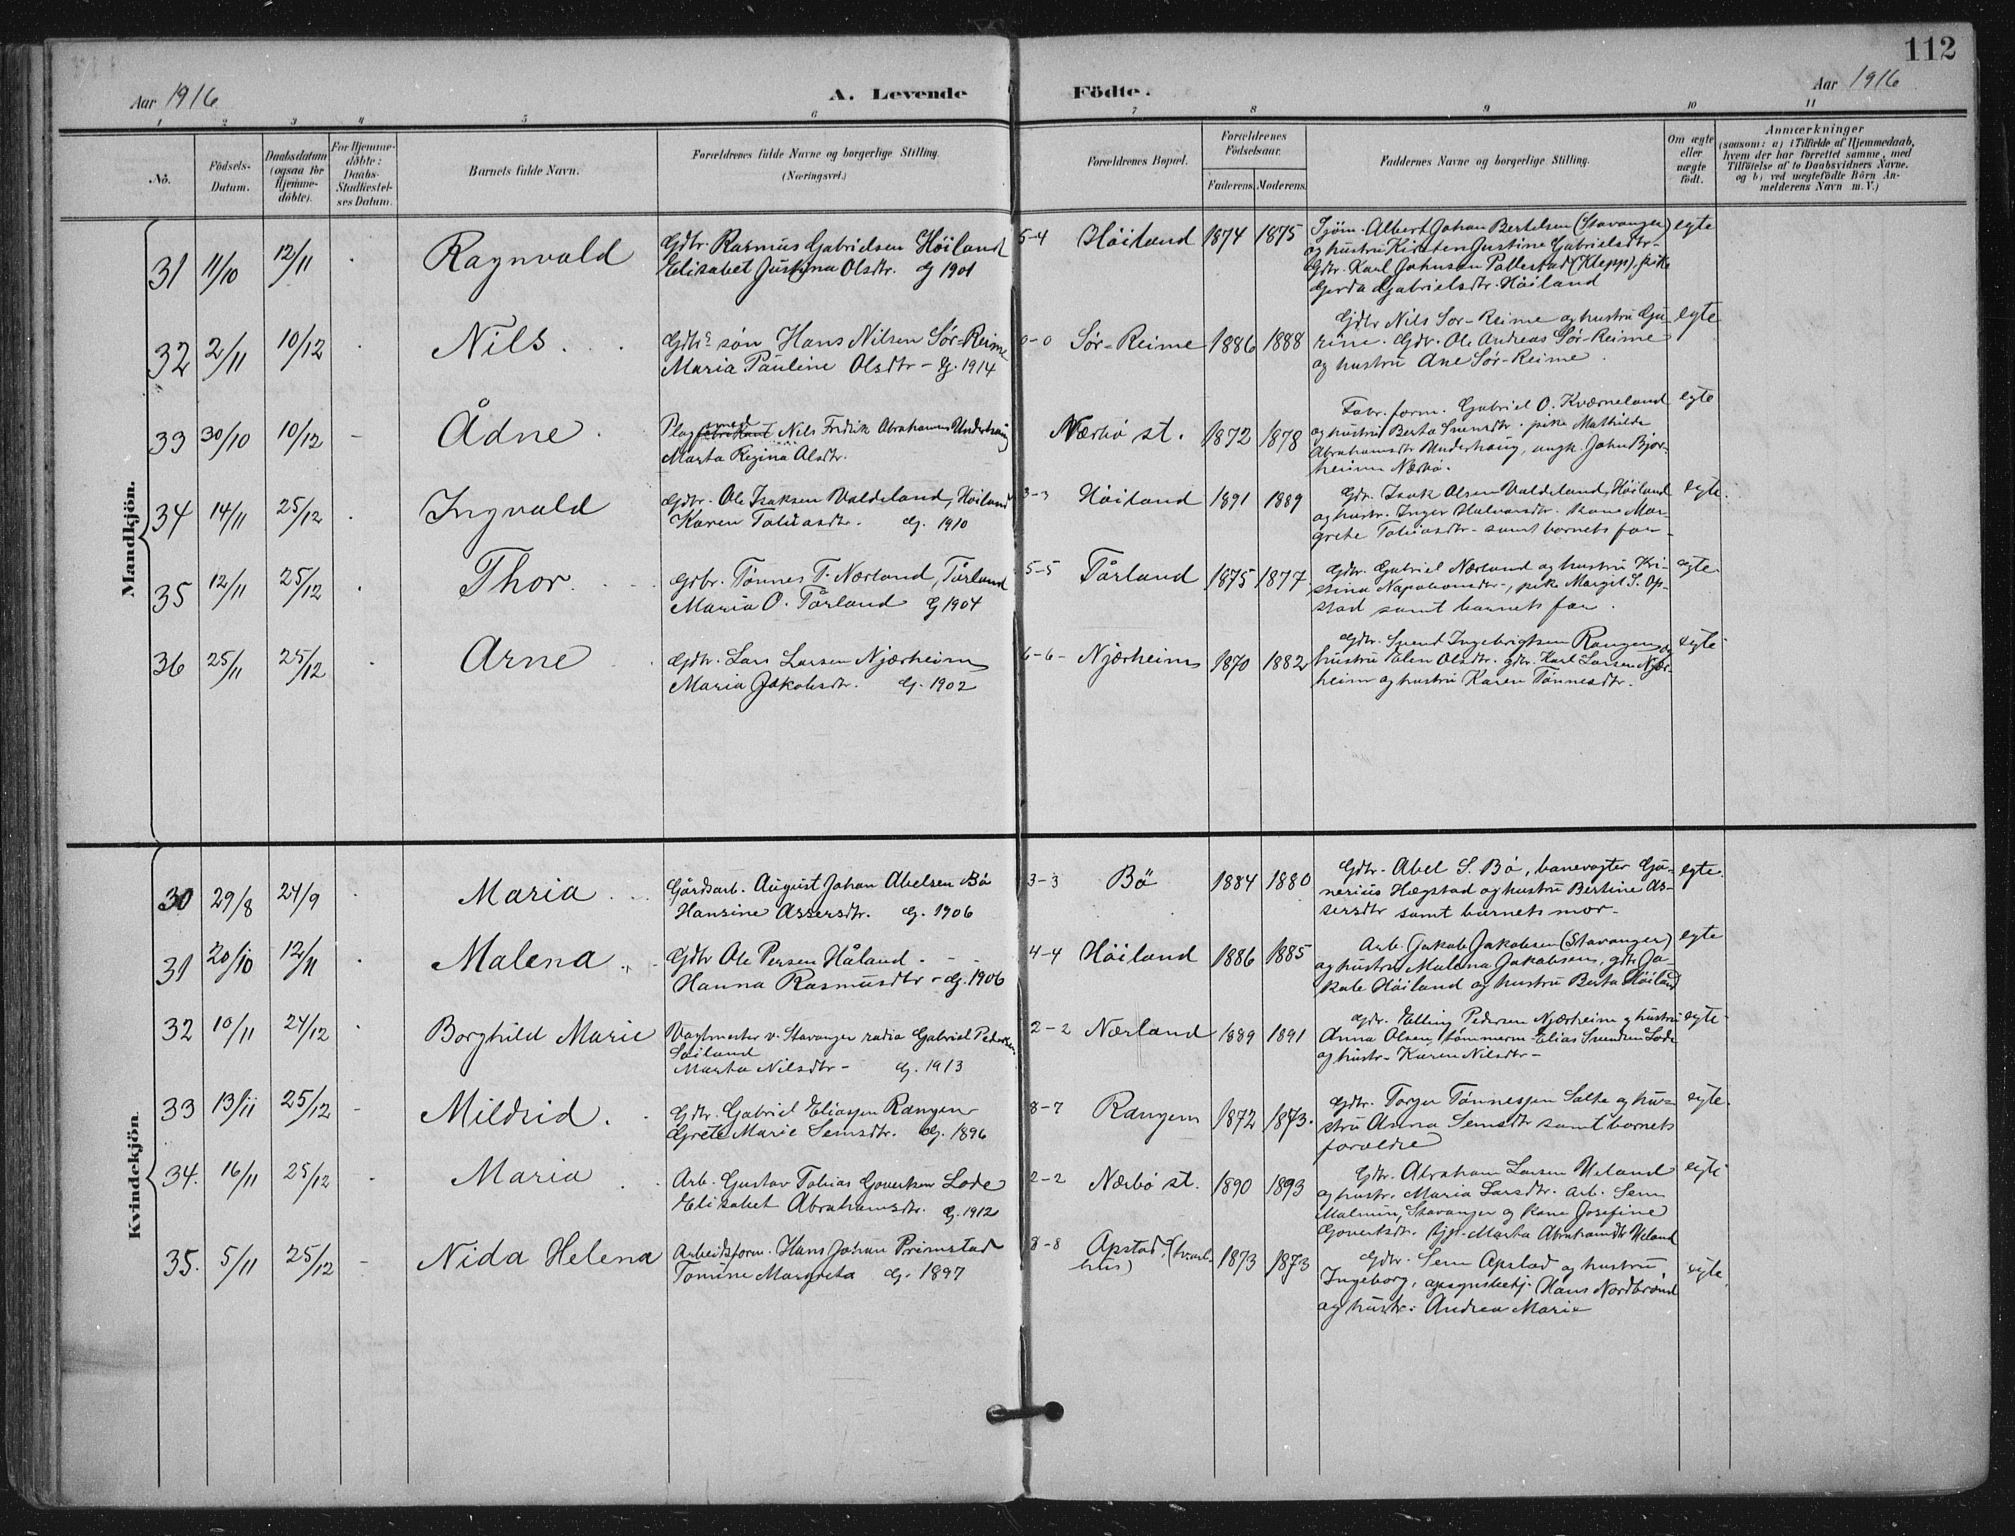 112
Aar 1916
A. Levende Födte.
Aar 1916
1 2 3 4 5 6 7 8 9 10 11
No.
Födsels-Datum.
Daabsdatum (ogsaa for Hjemme-döbte).
For Hjemme-döbte: Daabs-Stadfæstel-ses Datum.
Barnets fulde Navn.
Forældrenes fulde Navne og borgerlige Stilling.
(Næringsvei.)
Forældrenes Bopæl.
Forældrenes Födselsaar.
Faderens. Moderens.
Faddernes Navne og borgerlige Stilling.
Om ægte eller uægte födt.
Anmærkninger
(saasom: a) i Tilfælde af Hjemmedaab,
hvem der har forrettet samme, med
Tilföielse af to Daabsvidners Navne.
og b) ved uægtefödte Börn An-
melderens Navn m. V.)
Mandkjön.
31 11/10 12/11 Ragnvald
Gdbr. Rasmus Gabrielsen Höiland
Elisabet Justina Olsdtr. g 1901
5-4 Höiland 1874 1875
Sjöm. Albert Johan Bertelsen (Stavanger)
og hustru Kirsten Justine Gabrielsdtr-
Gdbr. Karl Johnsen Pollestad (Klepp). pike
Gerda Gabrielsdtr. Höiland
egte
32 2/11 10/12 Nils
Gdbrs søn Hans Nilsen Sör-Reime
Maria Pauline Olsdtr - g. 1914
0-0 Sör-Reime 1886 1888
Gdbr Nils Sör-Reime og hustru Gu-
rine. Gdbr. Ole Andreas Sör-Reime
og hustru Ane Sör-Reime.
egte
33 30/10 10/12 - Ådne
Plogsmed Nils Fredrik Abrahamsen Underhaug
Marta Regina Olsdtr.
Nærbö st. 1872 1878
Fabr. form. Gabriel O. Kværneland
og hustru Berta Svensdtr. pike Mathilde
Abrahamsdtr Underhaug, ungk. John Bjor-
heim Nærbö.
egte
34 14/11 25/12 Ingvald
Gdbr. Ole Isaksen Valdeland, Höiland
Karen Tobiasdtr. g. 1910
3-3 Höiland 1891 1889
Gdbr. Isak Olsen Valdeland, Höiland
og hustr. Inger Halvorsdtr. kone Mar-
grete Tobiasdtr- samt barnets far-
egte.
35 12/11 25/12 Thor.
Gdbr. Tönnes T. Nærland, Tårland
Maria O. Tårland g 1904
5-5 Tårland 1875 1877
Gdbr. Gabriel Nærland og hustru Kri-
stina Napoleonsdtr-, pike Margit S. Op-
stad samt barnets far.
egte
36 25/11 25/12 Arne
Gdbr. Lars Larsen Njærheim
Maria Jakobsdtr. g. 1902
6-6- Njærheim 1870 1882
Gdbr. Svend Ingebrigtsen Rangen og
hustru Malen Olsdtr. gdbr. Karl Larsen Njær-
heim og hustru Karen Tönnesdtr.
egte
Kvindekjön.
30 29/8 24/9 Maria
Gårdsarb. August Johan Abelsen Bö
Hansine Assersdtr. g. 1906
3-3 Bö 1884 1880
Gdbr. Abel S. Bö, banevogter Gu-
nerius Hægstad og hustru Bertine As-
sersdtr samt barnets mor-
egte.
31 20/10 12/11 Malena
Gdbr Ole Persen Håland.
Hanna Rasmusdtr - g. 1906
4-4 Höiland 1886 1885
Arb. Jakob Jakobsen (Stavanger)
og hustru Malena Jakobsen, gdbr Ja-
kob Höiland og hustru Berta Höiland
egte
32 10/11 24/12 Borghild Marie
Vagtmester v. Stavanger radio Gabriel Pedersen
Söiland
Marta Nilsdtr- g. 1913
2-2 Nærland 1889 1891
Gdbr. Elling Pedersen Njærheim og hustru
Anna Olsen, tömmerm. Elias Svendsen Lode
og hustr- Karen Nilsdtr-
egte
33 13/11 25/12 - Mildrid.
Gdbr. Gabriel Eliassen Rangen
Grete Marie Semsdtr. g. 1896
8-7 Rangen 1872 1873.
Gdbr. Torger Tönnessen Salte og hu-
stru Anna Semsdtr samt barnets
foreldre
egte.
34. 16/11 25/12 - Maria
Arb. Gustav Tobias Govertsen Lode
Elisabet Abrahamsdtr. g. 1912
2-2 Nærbö st. 1890 1893
Gdbr. Abraham Larsen Ueland
og hustr. Maria Larsdtr. arb. Sem
Malmin, Stavanger og kone Josefine
Govertsdtr. Marta Abrahamsdtr Ueland
egte
35. 5/11 25/12 - Nida Helena
Arbeidsform. Hans Johan Primstad
Tomine Margreta g. 1897
8-8 Opstad. 1873 1873
Gdbr. Sem Opstad og hustru
Ingeborg, opsynsbetj. Hans Nordbrönd
og hustr. Andrea Marie
egte.